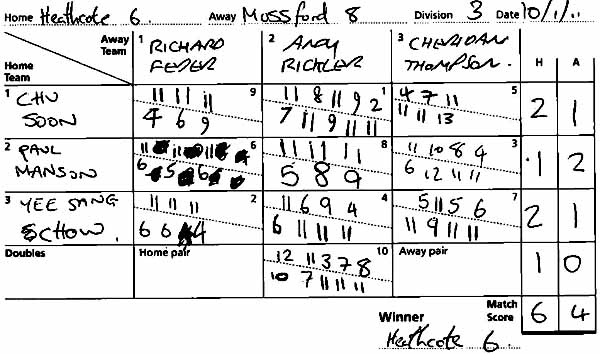 Home Heathcote 6 Away Mossford 8 Division 3 Date 10/1/11
Away Team 1 RICHARD FEDER 2 ANDY RICKLER 3 CHERIDAN THOMPSON. H A
Home Team
1 CHU SOON 11 11 11 9 11 8 11 9 2 1 4 7 11 5 2 1
4 6 9 7 11 9 11 11 11 11 13
2 PAUL MANSON 6 11 11 11 8 11 10 8 3 1 2
5 8 9 6 12 11 11
3 YEE SANG CHOW. 11 11 11 2 11 6 9 4 4 5 11 5 6 7 2 1
6 6 4 6 11 11 11 11 9 11 11
Doubles Home pair 12 11 3 7 8 10 Away pair 1 0
10 7 11 11 11
Winner Match Score 6 4
Heathcote 6.